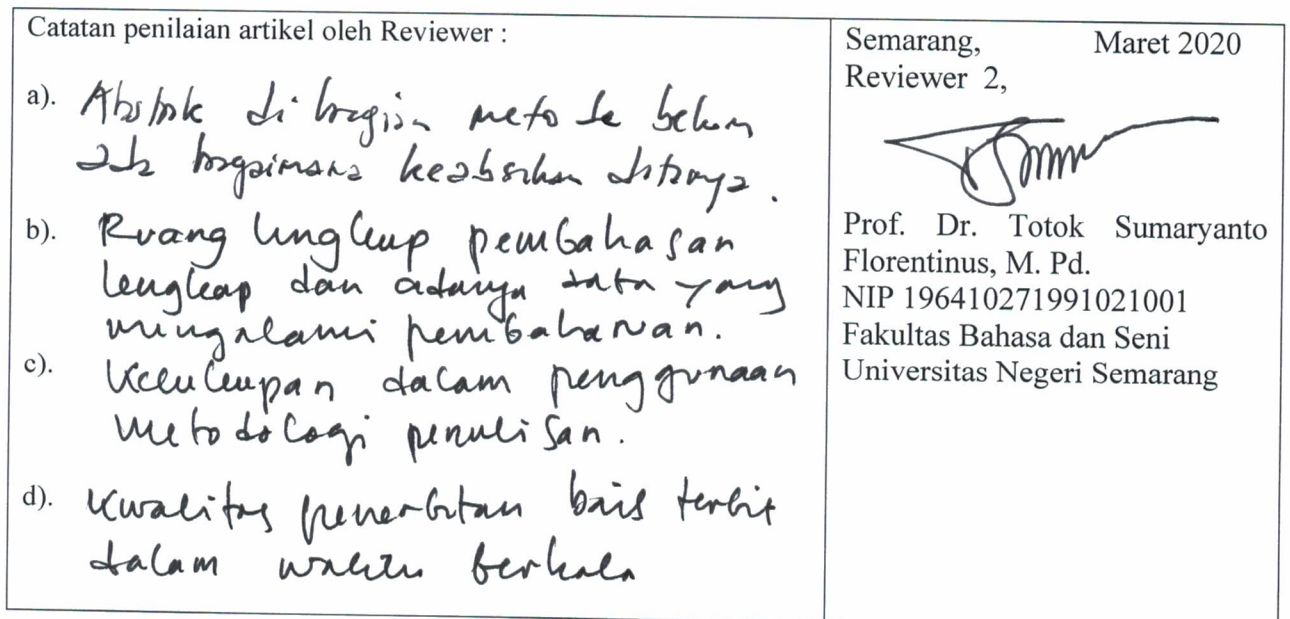 Catatan penilaian artikel oleh Reviewer :
a). Abstrak di bagian metode belum
ada bagaimana keabsahan datanya.
b). Ruang lingkup pembahasan
lengkap dan adanya data yang
mengalami pembaharuan.
c). Kecukupan dalam penggunaan
metodologi penulisan.
d). Kwalitas penerbitan baik terbit
dalam waktu berkala
Semarang, Maret 2020
Reviewer 2,
Prof. Dr. Totok Sumaryanto
Florentinus, M. Pd.
NIP 196410271991021001
Fakultas Bahasa dan Seni
Universitas Negeri Semarang